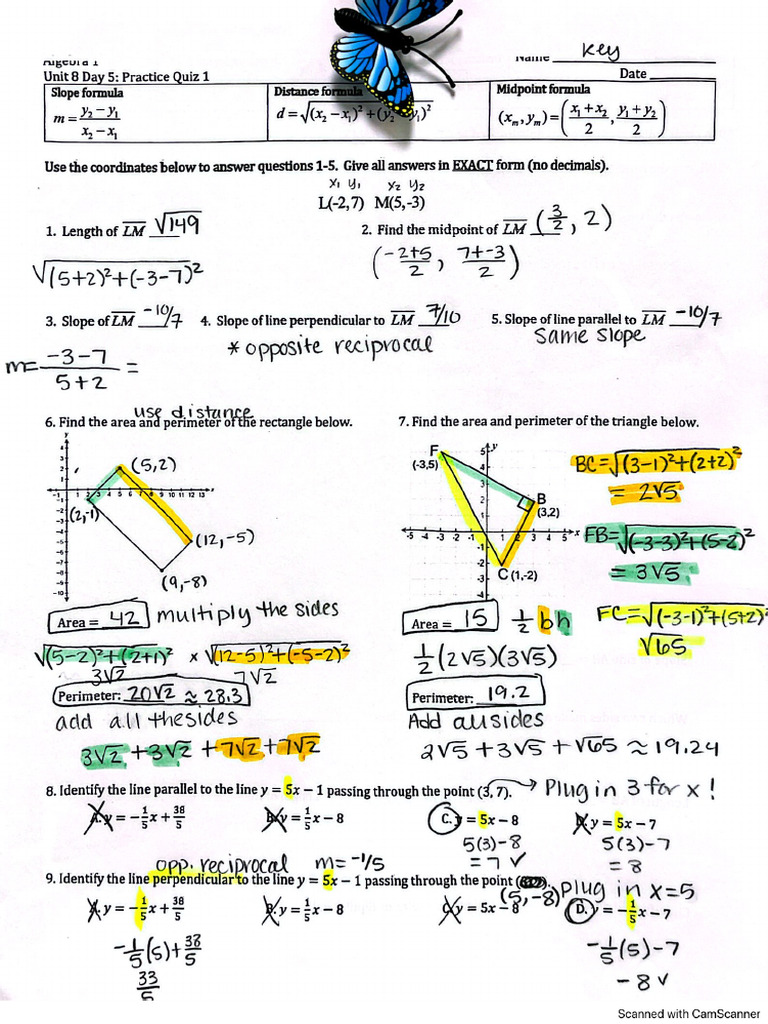 Algebra 1 Name Key
Unit 8 Day 5: Practice Quiz 1 Date
Slope formula Distance formula Midpoint formula
m = (y₂ − y₁)/(x₂ − x₁) d = √(x₂ − x₁)² + (y₂ y₁)² (xₘ, yₘ) = ((x₁ + x₂)/2, (y₁ + y₂)/2)
Use the coordinates below to answer questions 1-5. Give all answers in EXACT form (no decimals).
x₁ y₁ x₂ y₂
L(-2,7) M(5,-3)
1. Length of LM √149 2. Find the midpoint of LM (3/2, 2)
√(5+2)²+(-3-7)² (-2+5/2, 7+-3/2)
3. Slope of LM -10/7 4. Slope of line perpendicular to LM 7/10 5. Slope of line parallel to LM -10/7
* opposite reciprocal same slope
m= -3-7/5+2 =
use distance
6. Find the area and perimeter of the rectangle below. 7. Find the area and perimeter of the triangle below.
(5,2)
(2,-1)
(12,-5)
(9,-8)
F (-3,5)
B (3,2)
C (1,-2)
BC=√(3-1)²+(2+2)²
= 2√5
FB=√(-3-3)²+(5-2)²
= 3√5
FC=√(-3-1)²+(5+2)²
√65
Area = 42 multiply the sides Area = 15 1/2 bh
√(5-2)²+(2+1)² x √(12-5)²+(-5-2)² 1/2(2√5)(3√5)
3√2 7√2
Perimeter: 20√2 ≈ 28.3 Perimeter: 19.2
add all the sides Add all sides
3√2+3√2+7√2+7√2 2√5+3√5+√65 ≈ 19.24
8. Identify the line parallel to the line y = 5x − 1 passing through the point (3, 7). → Plug in 3 for x!
A. y = −1/5x + 38/5 B. y = 1/5x − 8 C. y = 5x − 8 D. y = 5x − 7
5(3)-8 5(3)-7
= 7 ✓ = 8
opp. reciprocal m=-1/5
9. Identify the line perpendicular to the line y = 5x − 1 passing through the point (5,-8) plug in x=5
A. y = −1/5x + 38/5 B. y = 1/5x − 8 C. y = 5x − 8 D. y = −1/5x − 7
-1/5(5)+38/5 -1/5(5)-7
33/5 -8 ✓
Scanned with CamScanner